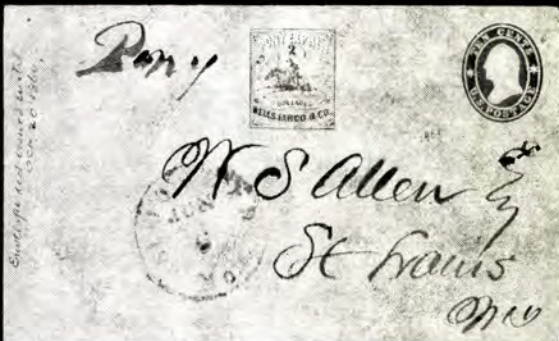 Pony
PONY EXPRESS
2
DOLLARS
WELLS FARGO & CO.
TEN CENTS
U.S. POSTAGE
W S Allen Esq
St Louis
Mo
JUN
Envelope not issued until
Oct 26 1860